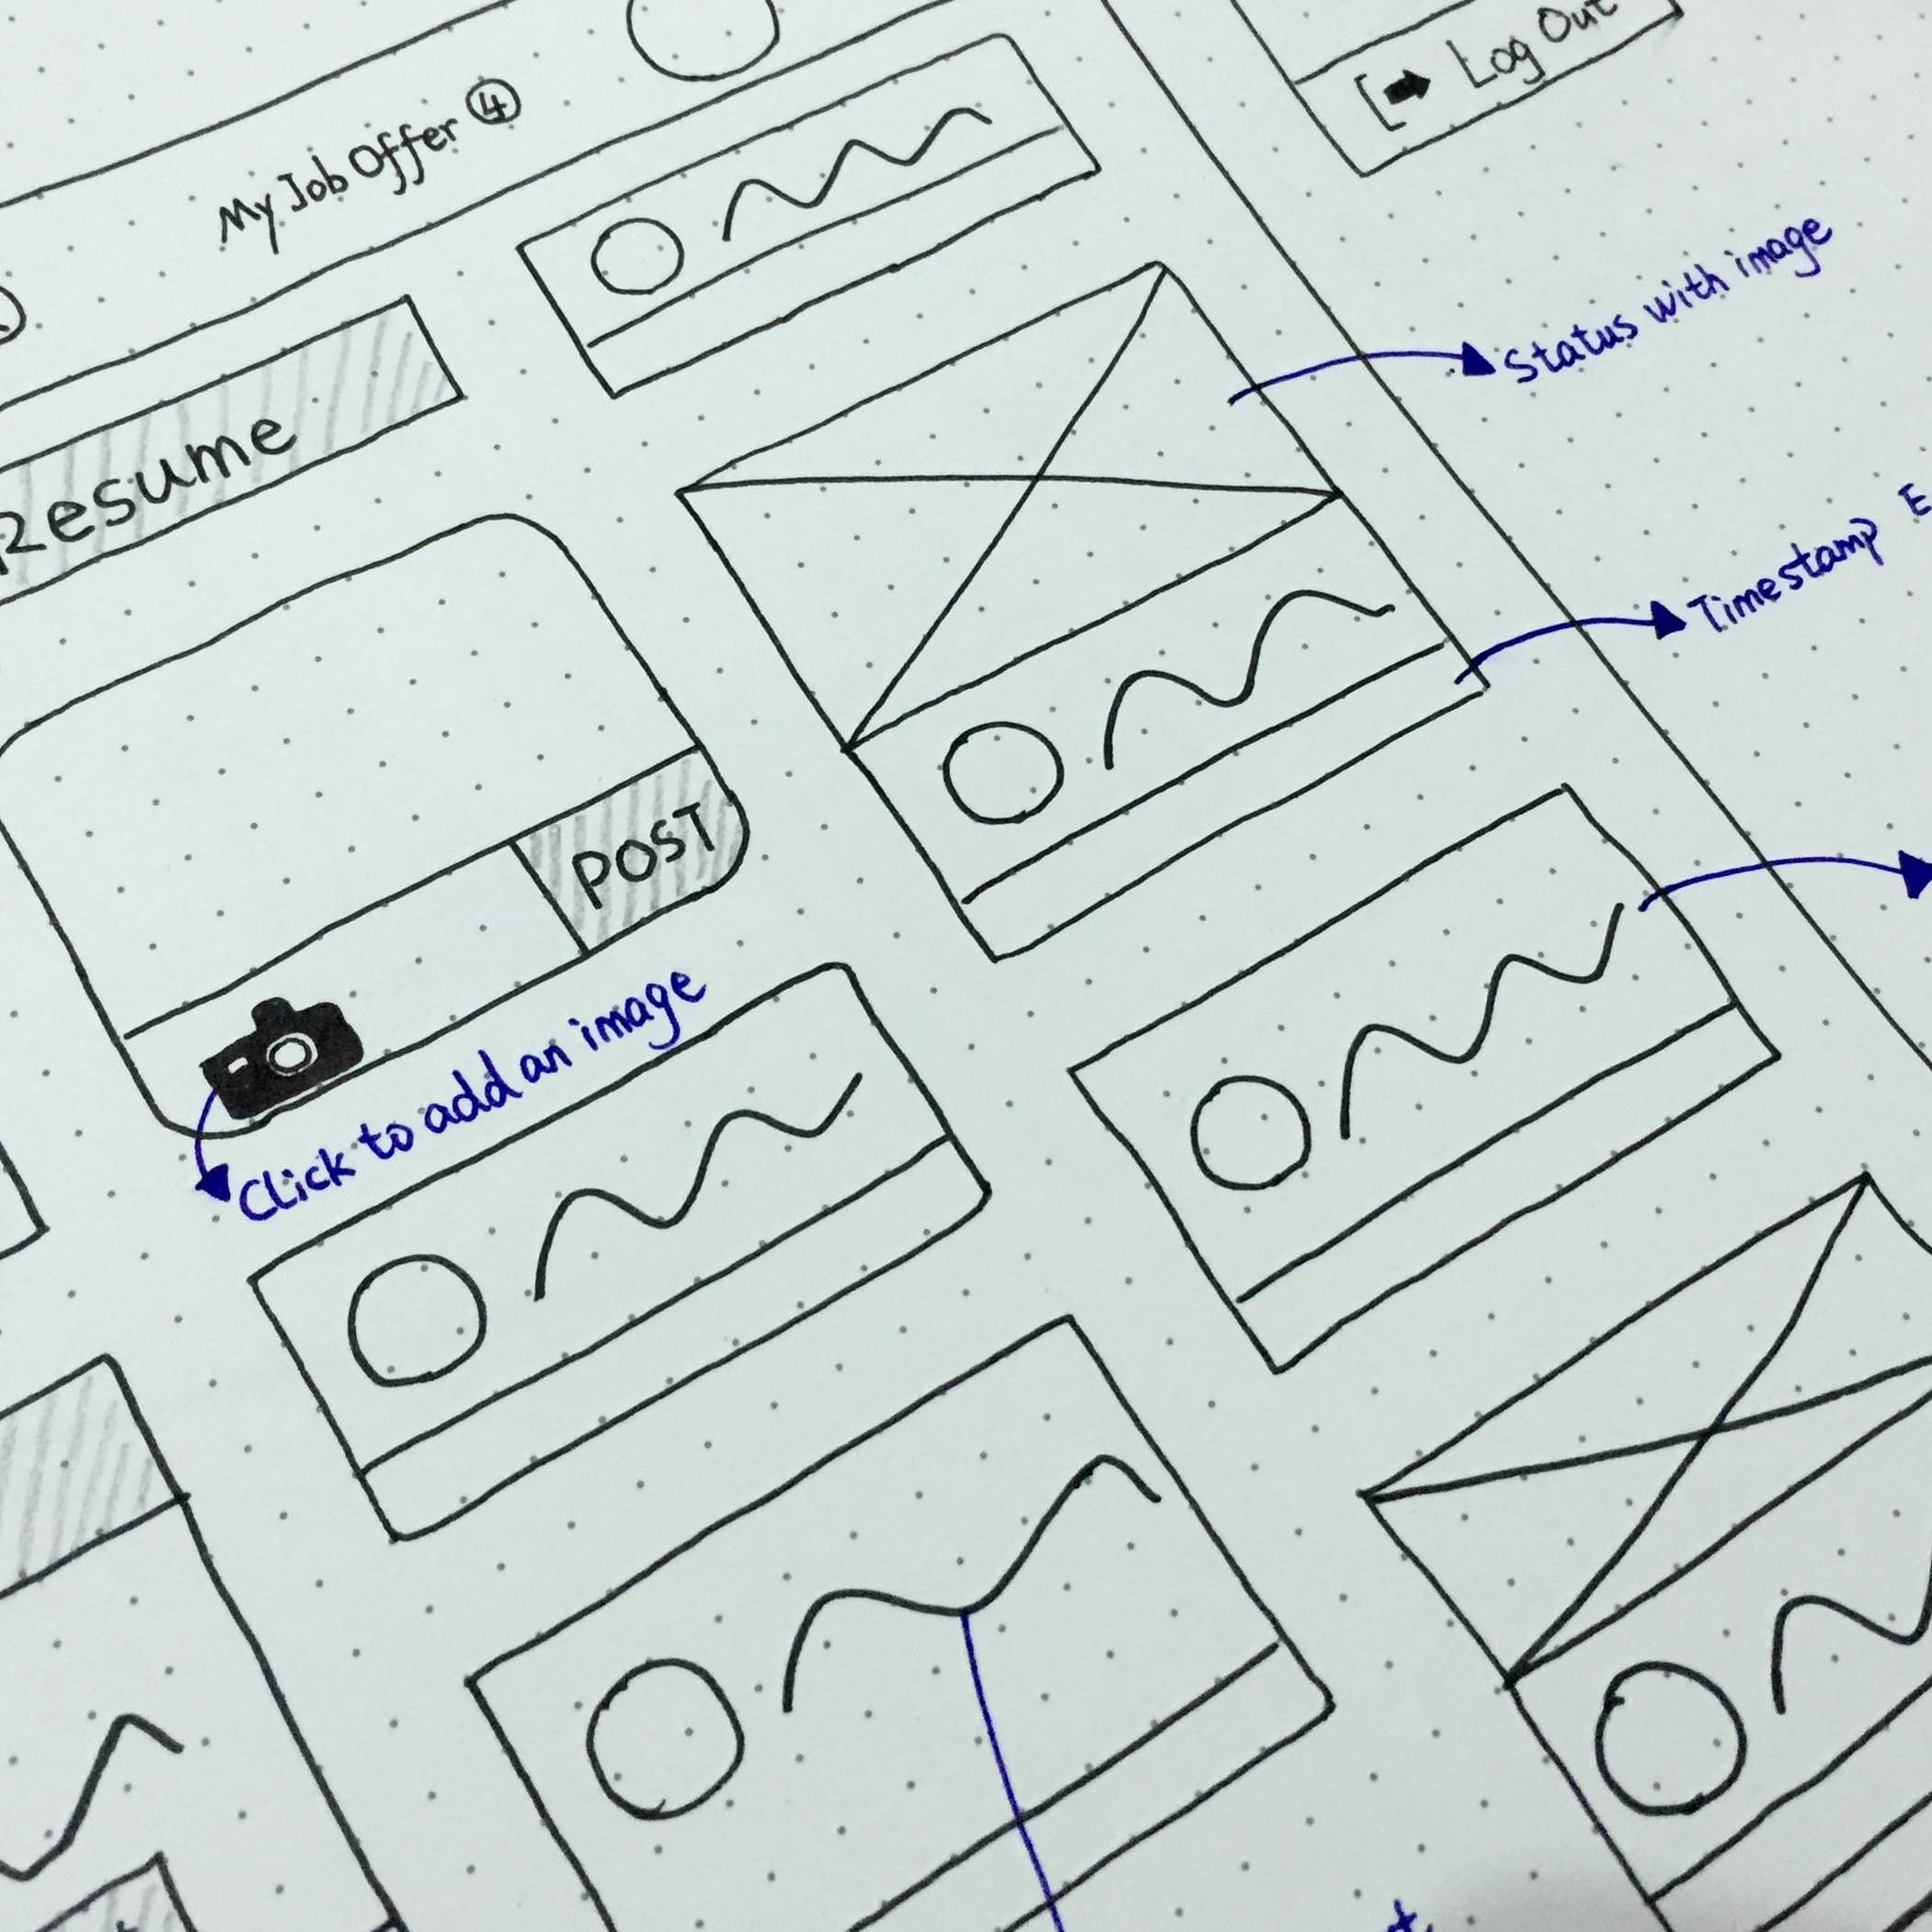 Log Out
My Job Offer 4
Status with image
Resume
Timestamp E
POST
Click to add an image